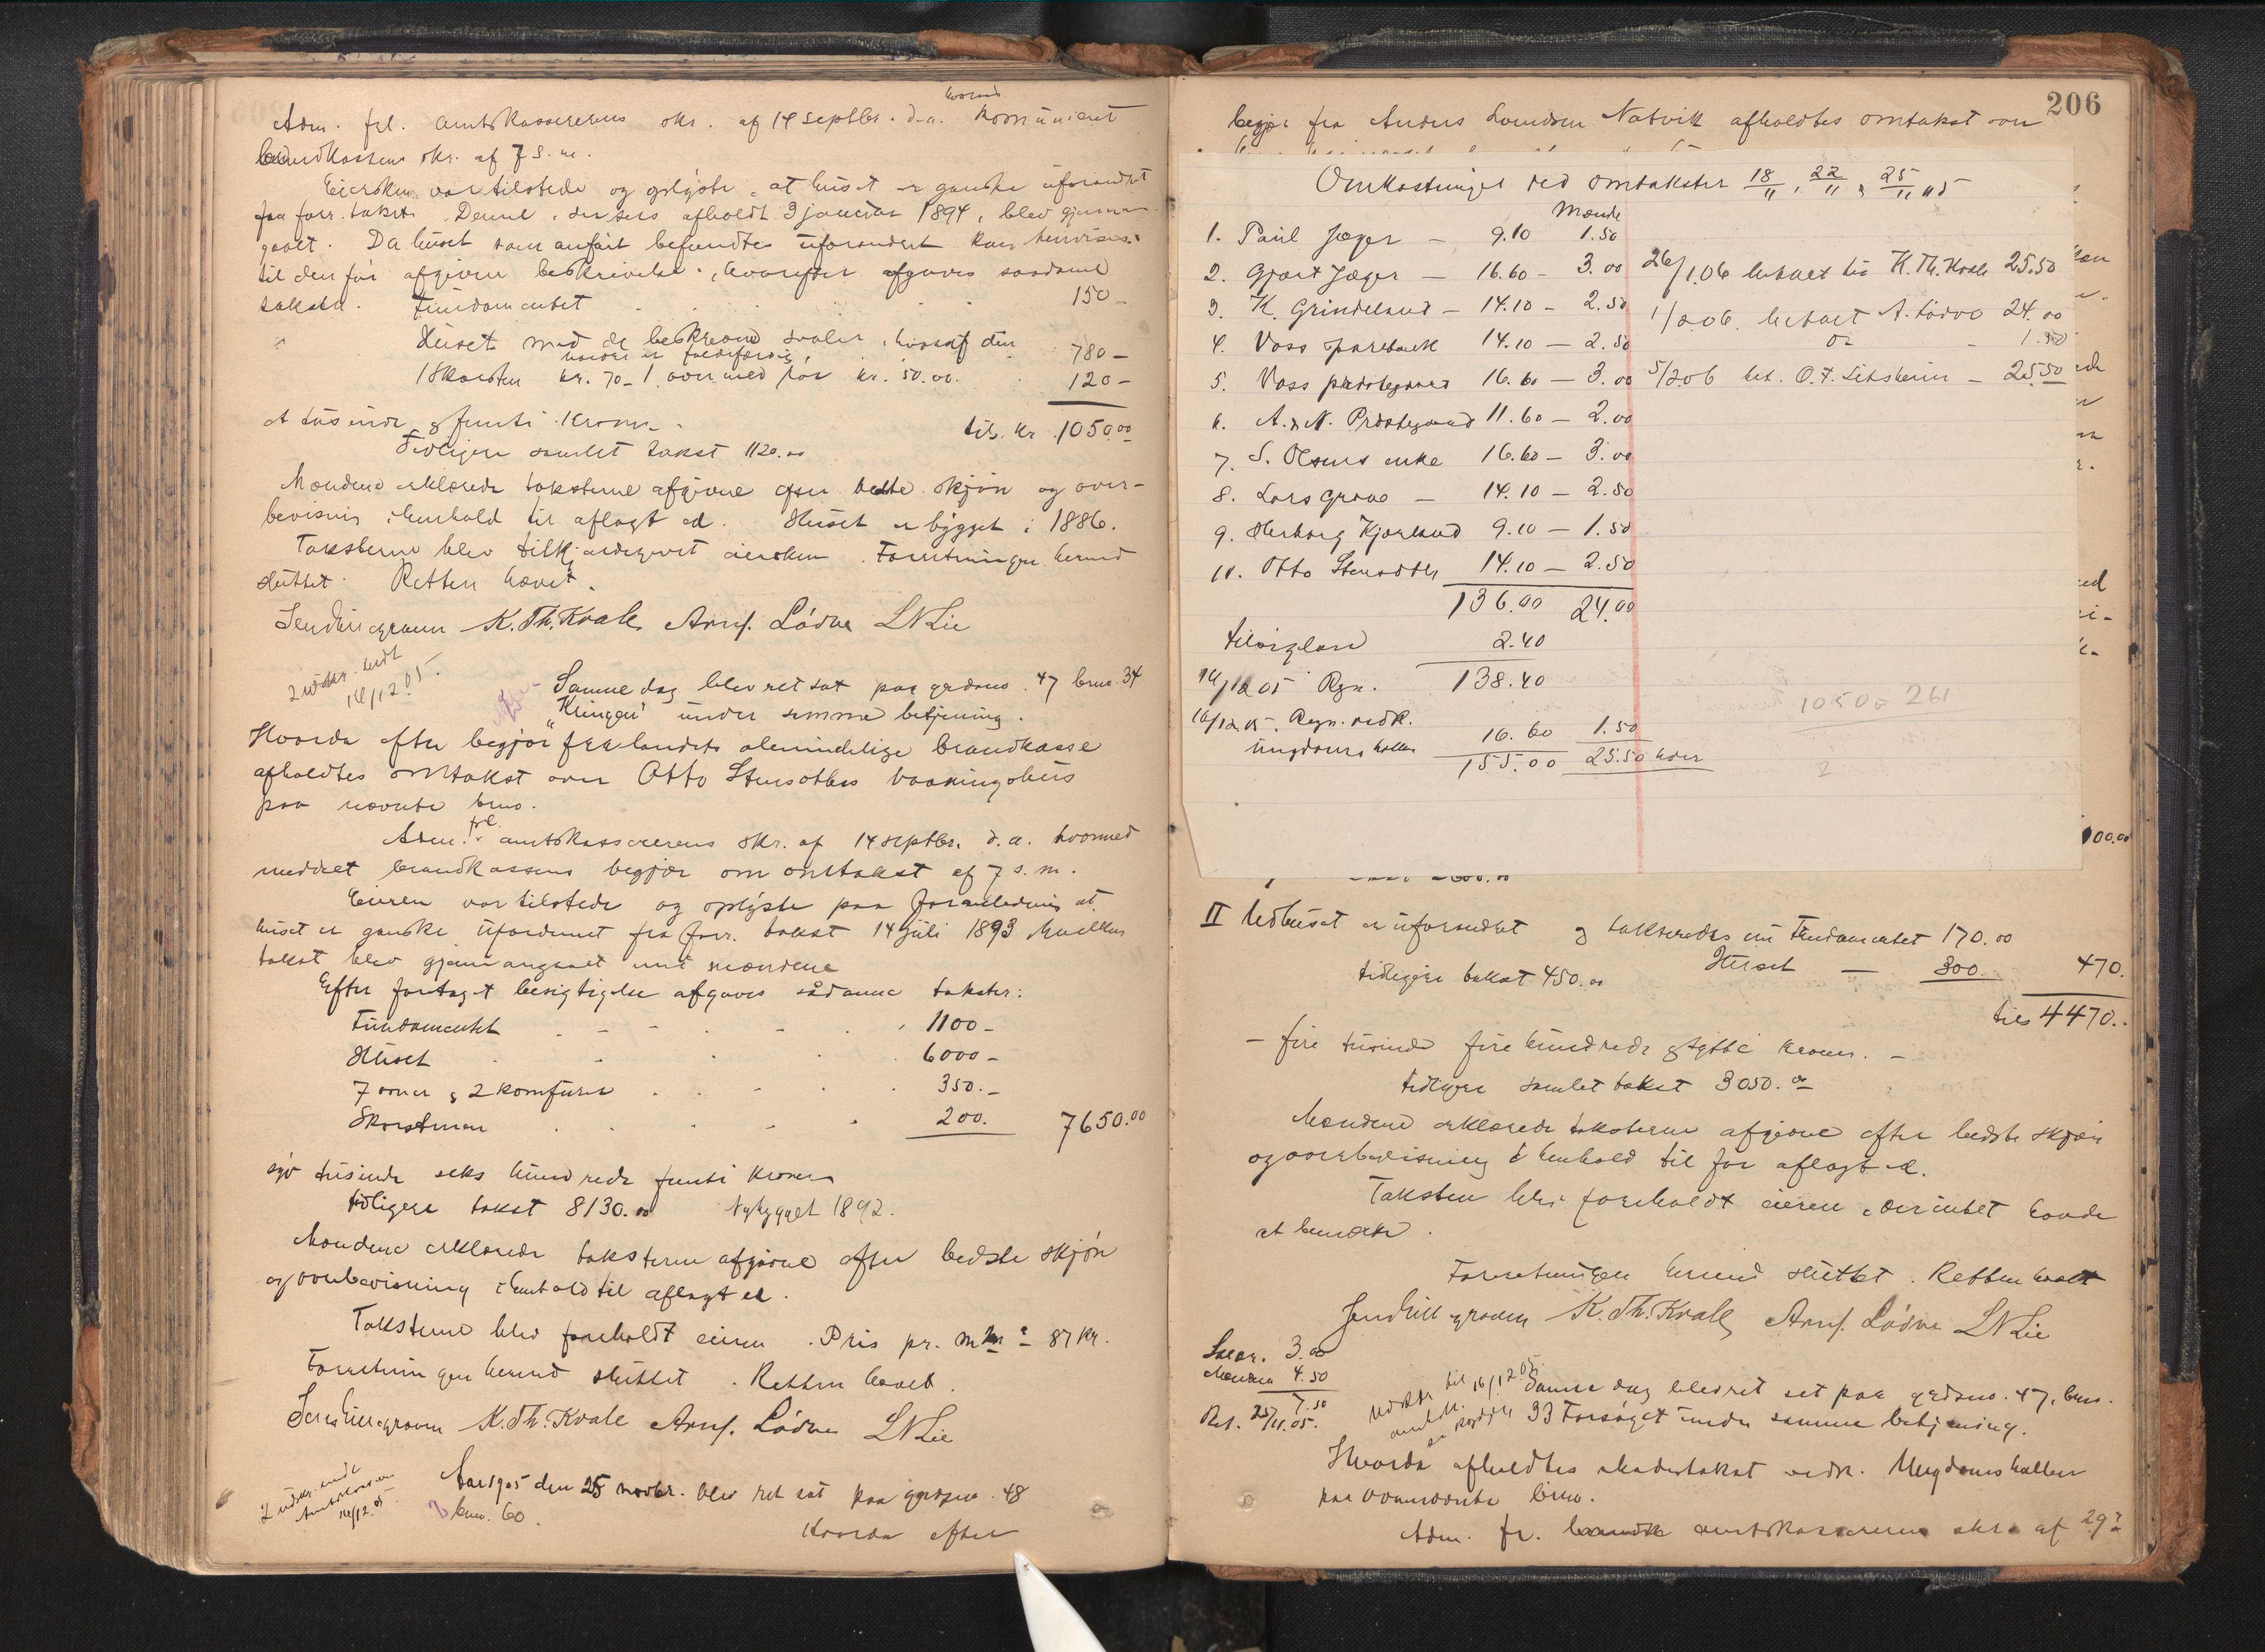 Adm. frl. amtskassererens skr. af 14 septbr. d.a. hvorved kommunicert
brandkassens skr. af 7 s. m.
Eiersken var tilstede og oplyste, at huset er ganske uforandret
fra forr. takst. Denne, der sees afholdt 3 januar 1894, blev gjennem-
gaaet. Da huset som anført befandtes uforandret kan henvises
til den før afgivne beskrivelse, hvorefter afgaves saadanne
takster. Fundamentet 150 -
Huset med de beskrevne svaler, hvoraf den
nordre er faldefærdig 780 -
1 Skorsten kr. 70 - 1 ovn med rør kr. 50.00. 120 -
et tusinde og femti kroner. tils. kr. 1050.00
Tidligere samlet takst 1120.00
Mændene erklærede taksterne afgivne efter bedste skjøn og over-
bevisning i henhold til aflagt ed. Huset er bygget i 1886.
Taksterne blev tilkjendegivet eiersken. Forretningen hermed
sluttet. Retten hævet.
K. Th. Kvale Arnf. Lødve LN Lie
2 udskr. sendt
16/12 05.
Samme dag blev ret sat paa grdsno. 47 brno. 34
"Kringen" under samme betjening.
Hvorda efter begjær fra landets almindelige brandkasse
afholdtes omtakst over Otto Stensøthes vaaningshus
paa nævnte brno.
Adm. frl. amtskassererens skr. af 14 septbr. d.a. hvormed
meddelt brandkassens begjær om omtakst af 7 s. m.
Eieren var tilstede og oplyste paa foranledning at
huset er ganske uforandret fra forr. takst 14 juli 1893 hvilken
takst blev gjennemgaaet med mændene
Efter foretaget besigtigelse afgaves sådanne takster:
Fundamentet 1100 -
Huset 6000 -
7 ovner og 2 komfurer 350. -
Skorstenen 200. 7650.00
syv tusinde seks hundrede femti kroner
tidligere takst 8130.00 Nybygget 1892.
Mændene erklærede taksterne afgivne efter bedste skjøn
og overbevisning i henhold til aflagt ed.
Taksterne blev foreholdt eieren. Pris pr. m² 87 kr.
Forretningen hermed sluttet. Retten hævet.
K. Th. Kvale Arnf. Lødve LN Lie
2 udskr. sendt
Amtskassereren
16/12 05.
Aar 1905 den 25 novbr. blev ret sat paa grdsno. 48
brno. 60.
Hvorda efter
206
begjær fra Anders Larsen Natvik afholdtes omtakst over
Omkostninger ved omtakster 18/11, 22/11 & 25/11 05
Mænde
1. Paul Jæger - 9.10 1.50
2. Gjært Jæger - 16.60 - 3.00
3. K. Grindeland - 14.10 - 2.50
4. Voss parebank 14.10 - 2.50
5. Voss prestegaard 16.60 - 3.00
6. A. & N. Prestegaard 11.60 - 2.00
7. S. Olsens enke 16.60 - 3.00
8. Lars Grave - 14.10 - 2.50
9. Herborg Kjørland 9.10 - 1.50
10. Otto Stensøthe 14.10 - 2.50
136.00 24.00
2.40
16/12 05 Regn. 138.40
16/12 05. Regn. vedk.
ungdomshallen 16.60 1.50
155.00 25.50 hver
26/1.06 betalt til K. Th. Kvale 25.50
1/2.06. betalt A. Lødve 24.00
1.50
5/2.06 bet. O. F. - 25.50
1050 261
2
100.00
II Udhuset er uforandret og takseredes nu Fundamentet 170.00
tidligere takst 450.00 Huset - 300. 470.
tils 4470..
- fire tusinde fire hundrede og sytti kroner. -
tidligere samlet takst 3050.00
Mændene erklærede taksterne afgivne efter bedste skjøn
og overbevisning i henhold til før aflagt ed.
Taksten blev foreholdt eieren, der intet havde
at bemærke.
Forretningen hermed sluttet. Retten hævet
K. Th. Kvale Arnf. Lødve LN Lie
Salær. 3.00
Mændene 4.50
7.50
Bet. 25/11.05.
udskr. til 16/12 05
Samme dag blev ret sat paa grdsno. 47, brno.
33 Forsøget under samme betjening.
Hvorda afholdtes skadestakst vedk. Ungdomshallen
paa ovennævnte brno.
Adm. fr. amtskassererens skr. af 29de